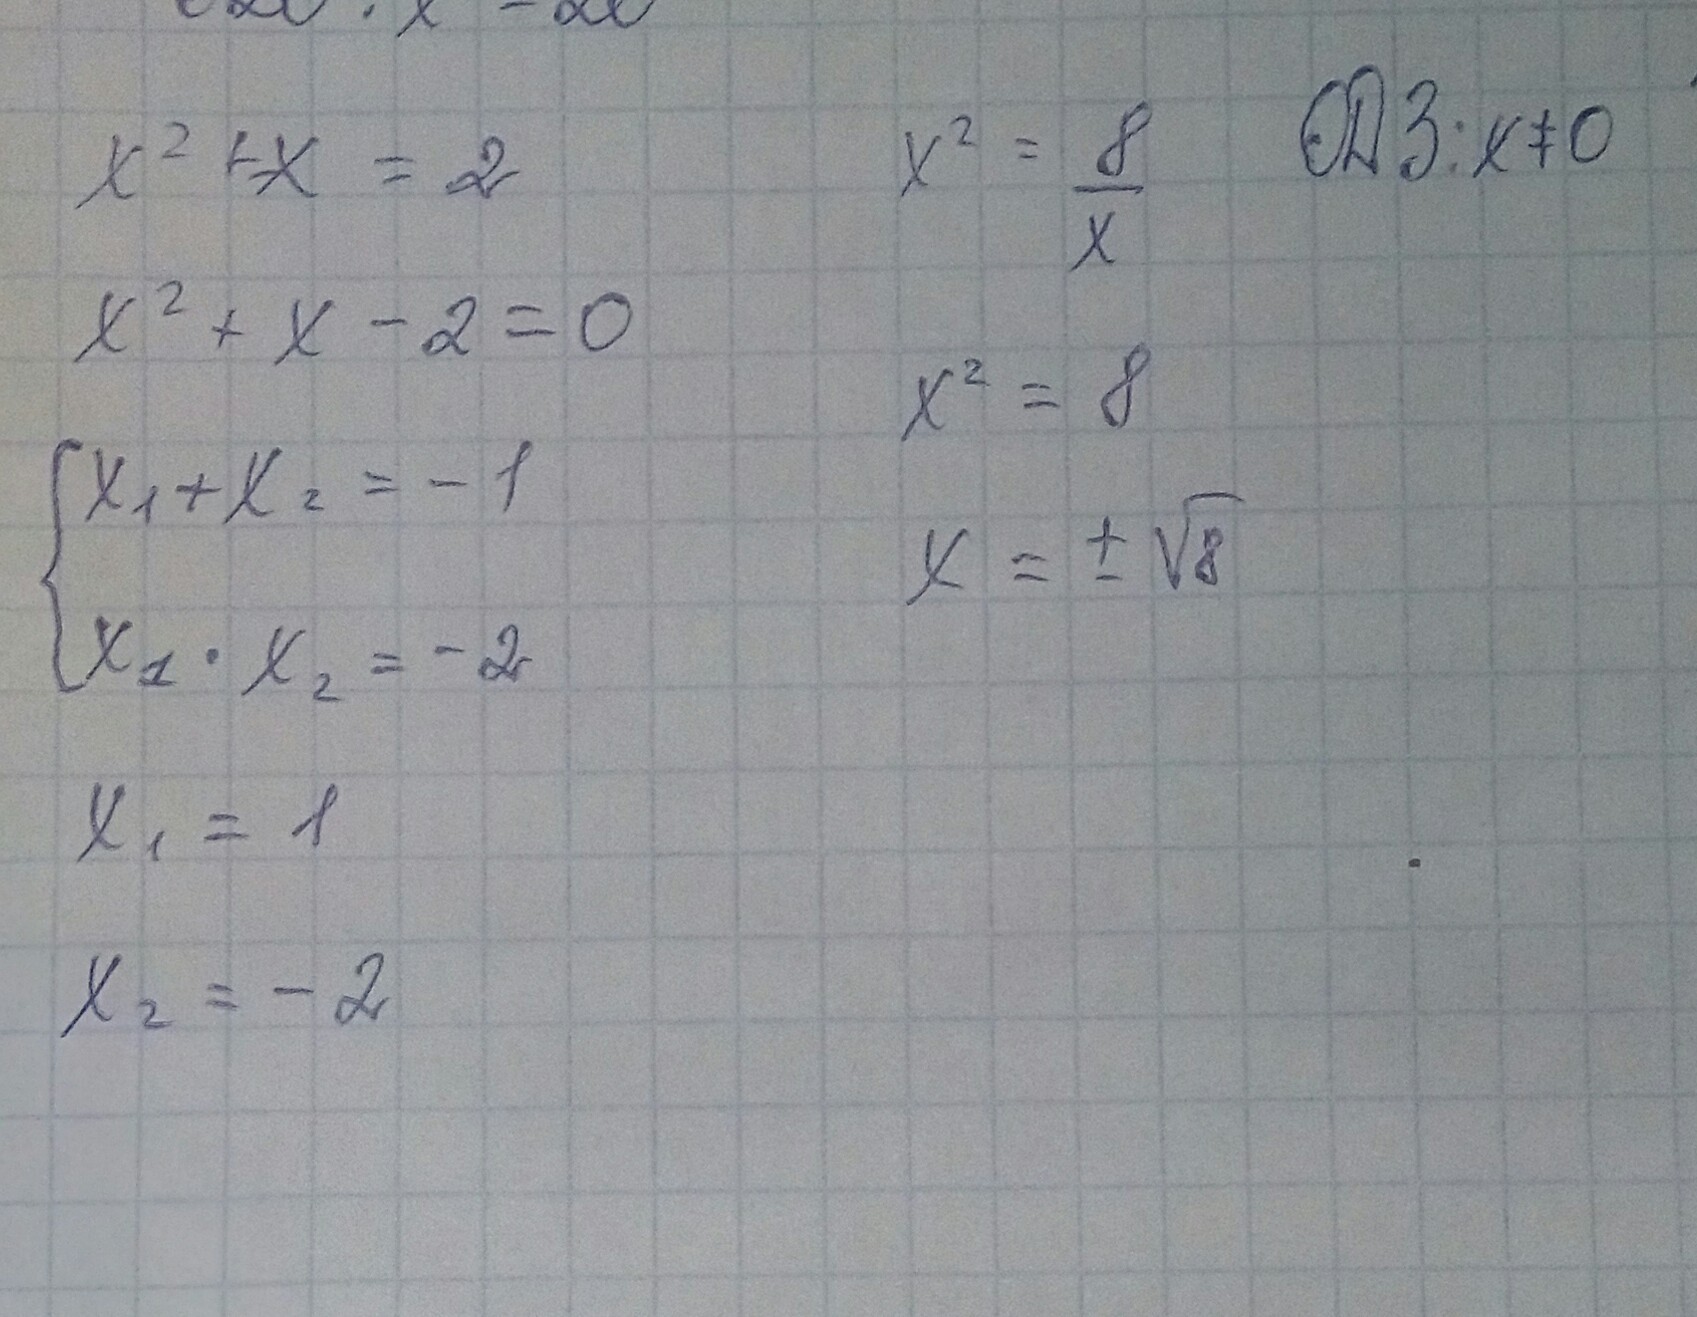 x² + x = 2
x² + x - 2 = 0
{ x₁ + x₂ = -1
x₁ · x₂ = -2
x₁ = 1
x₂ = -2
x² = 8/x ОДЗ: x ≠ 0
x² = 8
x = ± √8